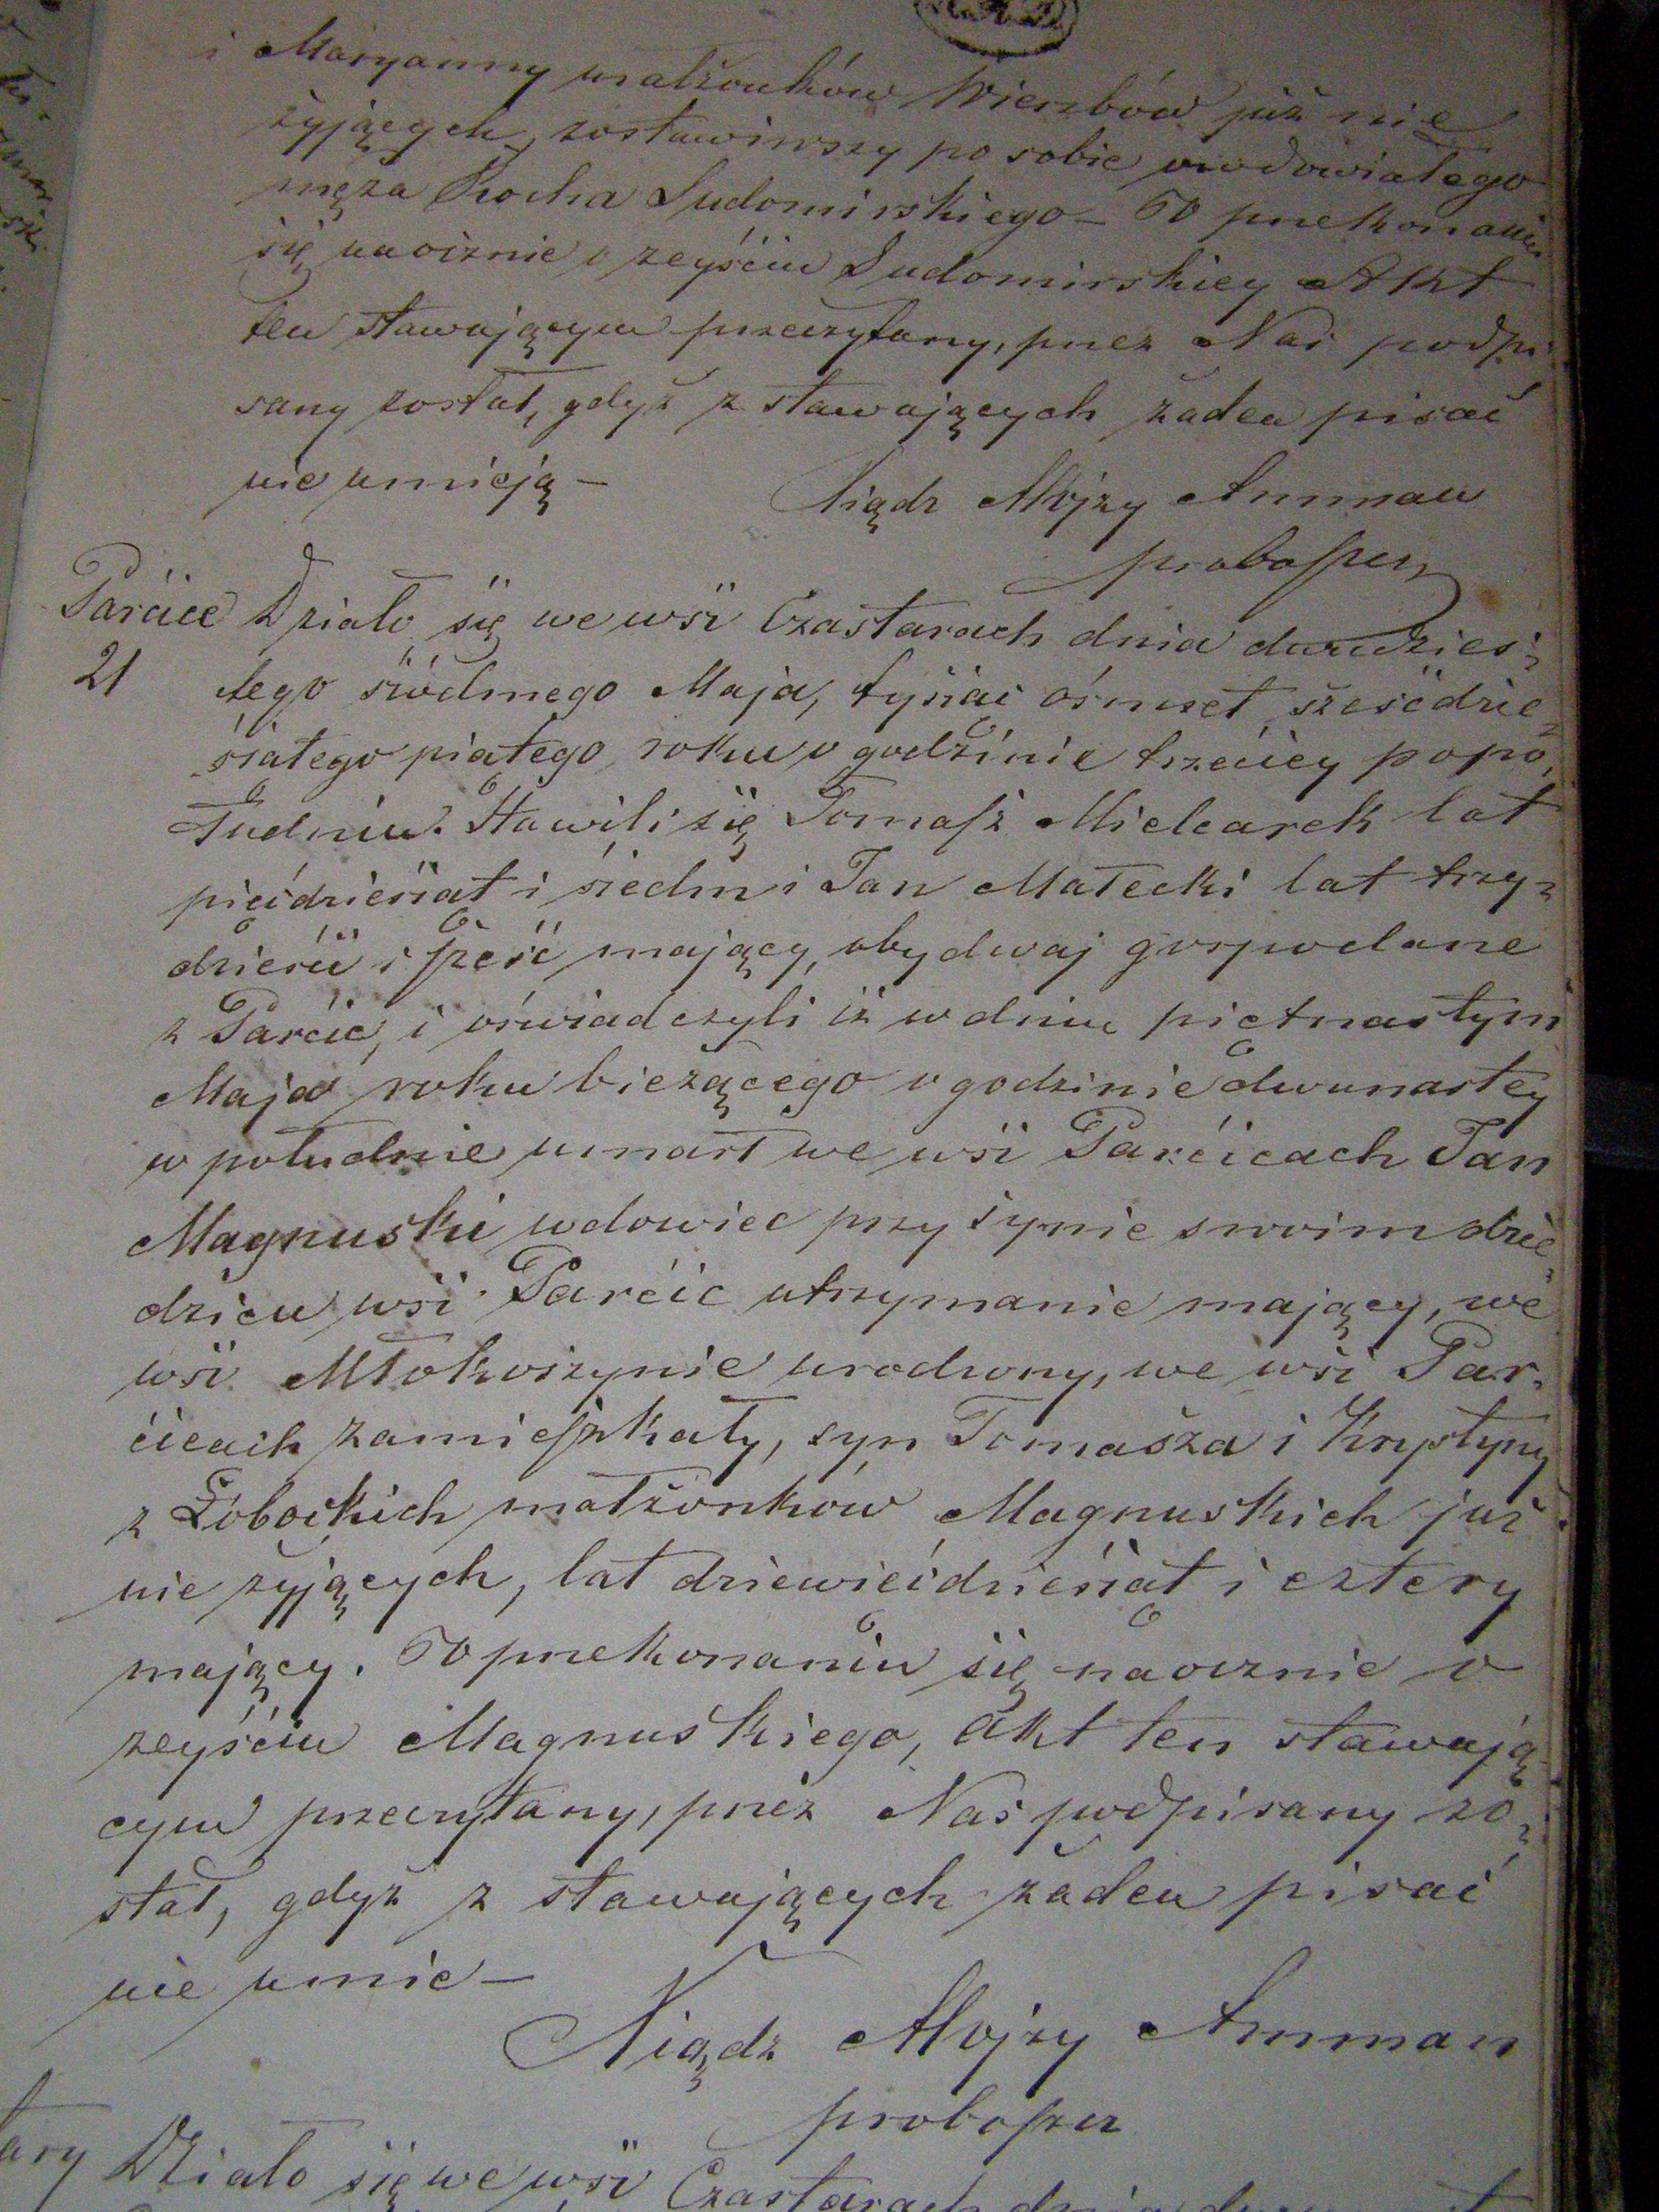 i Maryanny małżonków Wierzbów już nie
żyjących, zostawiwszy po sobie owdowiałego
męża Rocha Sudomirskiego – Po przekonaniu
się naocznie o zeyściu Sudomirskiey Akt
ten stawającym przeczytany, przez Nas podpi
sany został, gdyż z stawających żaden pisać
nie umieją –
Xiądz Aloizy Amman
proboszcz
Parcice
21
Działo się we wsi Czastarach dnia dwudzies=
tego siódmego Maja, tysiąc ośmset sześćdzie=
siątego piątego roku o godzinie trzeciey popo=
łudniu. Stawili się Tomasz Mielcarek lat
pięćdziesiąt i siedm i Jan Małecki lat trzy=
dzieści i sześć mający, obydwaj gospodarze
z Parcic, i oświadczyli iż w dniu piętnastym
Maja roku bieżącego o godzinie dwunastey
w południe umarł we wsi Parcicach Jan
Magnuski wdowiec przy synie swoim dzie=
dzicu wsi Parcic utrzymanie mający, we
wsi Młokoszynie urodzony, we wsi Par=
cicach zamieszkały, syn Tomasza i Krystyny
z Łobockich małżonków Magnuskich już
nie żyjących, lat dziewięćdziesiąt i cztery
mający. Po przekonaniu się naocznie o
zeyściu Magnuskiego, akt ten stawają=
cym przeczytany, przez Nas podpisany zo=
stał, gdyż z stawających żaden pisać
nie umie –
Xiądz Aloizy Amman
proboszcz
tary Działo się we wsi Czastarach dnia